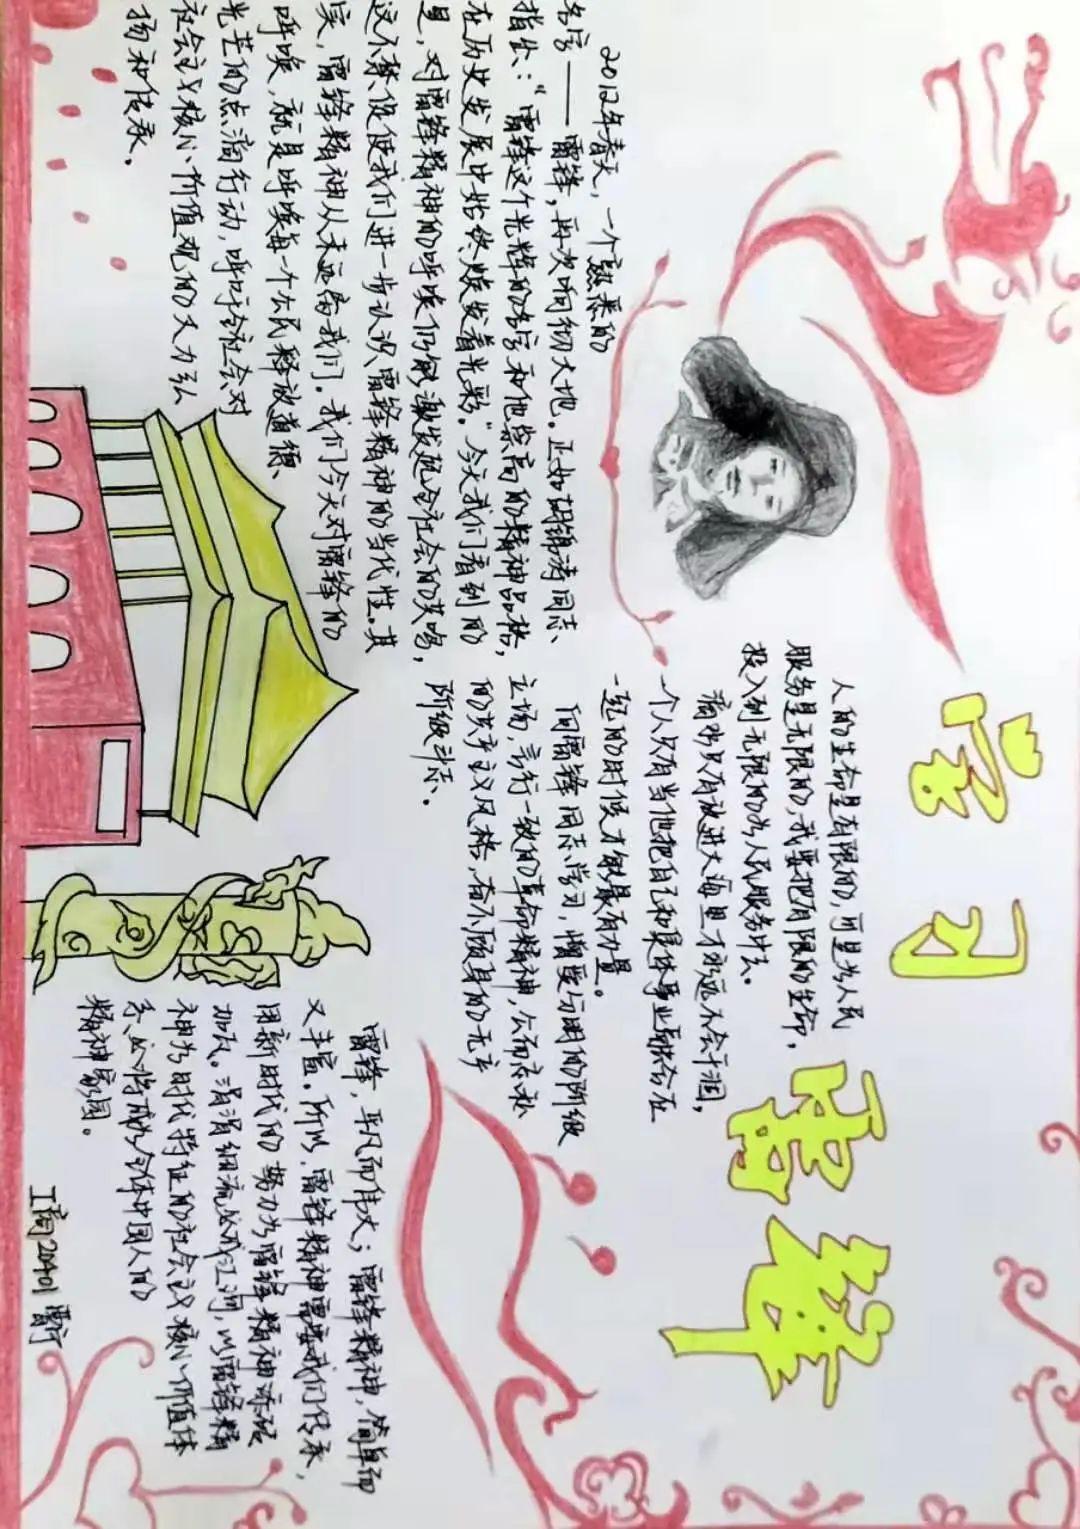 月
雷锋
人的生命是有限的，可是为人民
服务是无限的，我要把有限的生命，
投入到无限的为人民服务中去。
滴水只有放进大海里才永远不会干涸，
一个人只有当他把自己和集体事业融合在
一起的时候才能最有力量。
向雷锋同志学习，憎爱分明的阶级
立场，言行一致的革命精神，公而忘私
的共产主义风格，奋不顾身的无产
阶级斗志。
2012年春天，一个熟悉的
名字——雷锋，再次响彻大地。正如胡锦涛同志
指出：“雷锋这个光辉的名字和他崇高的精神品格，
在历史发展中始终焕发着光彩。”今天我们看到的
是，对雷锋精神的呼唤仍能激发起全社会的共鸣，
这不禁促使我们进一步认识雷锋精神的当代性。其
实，雷锋精神从未远离我们。我们今天对雷锋的
呼唤，就是呼唤每一个公民释放道德、
光芒的点滴行动，呼吁全社会对
社会主义核心价值观的大力弘
扬和传承。
雷锋，平凡而伟大；雷锋精神，简单而
又丰富。所以，雷锋精神需要我们传承，
用新时代的努力为雷锋精神添砖
加瓦。涓涓细流必成江河，以雷锋精
神为时代特征的社会主义核心价值体
系必将成为全体中国人的
精神家园。
工商20401